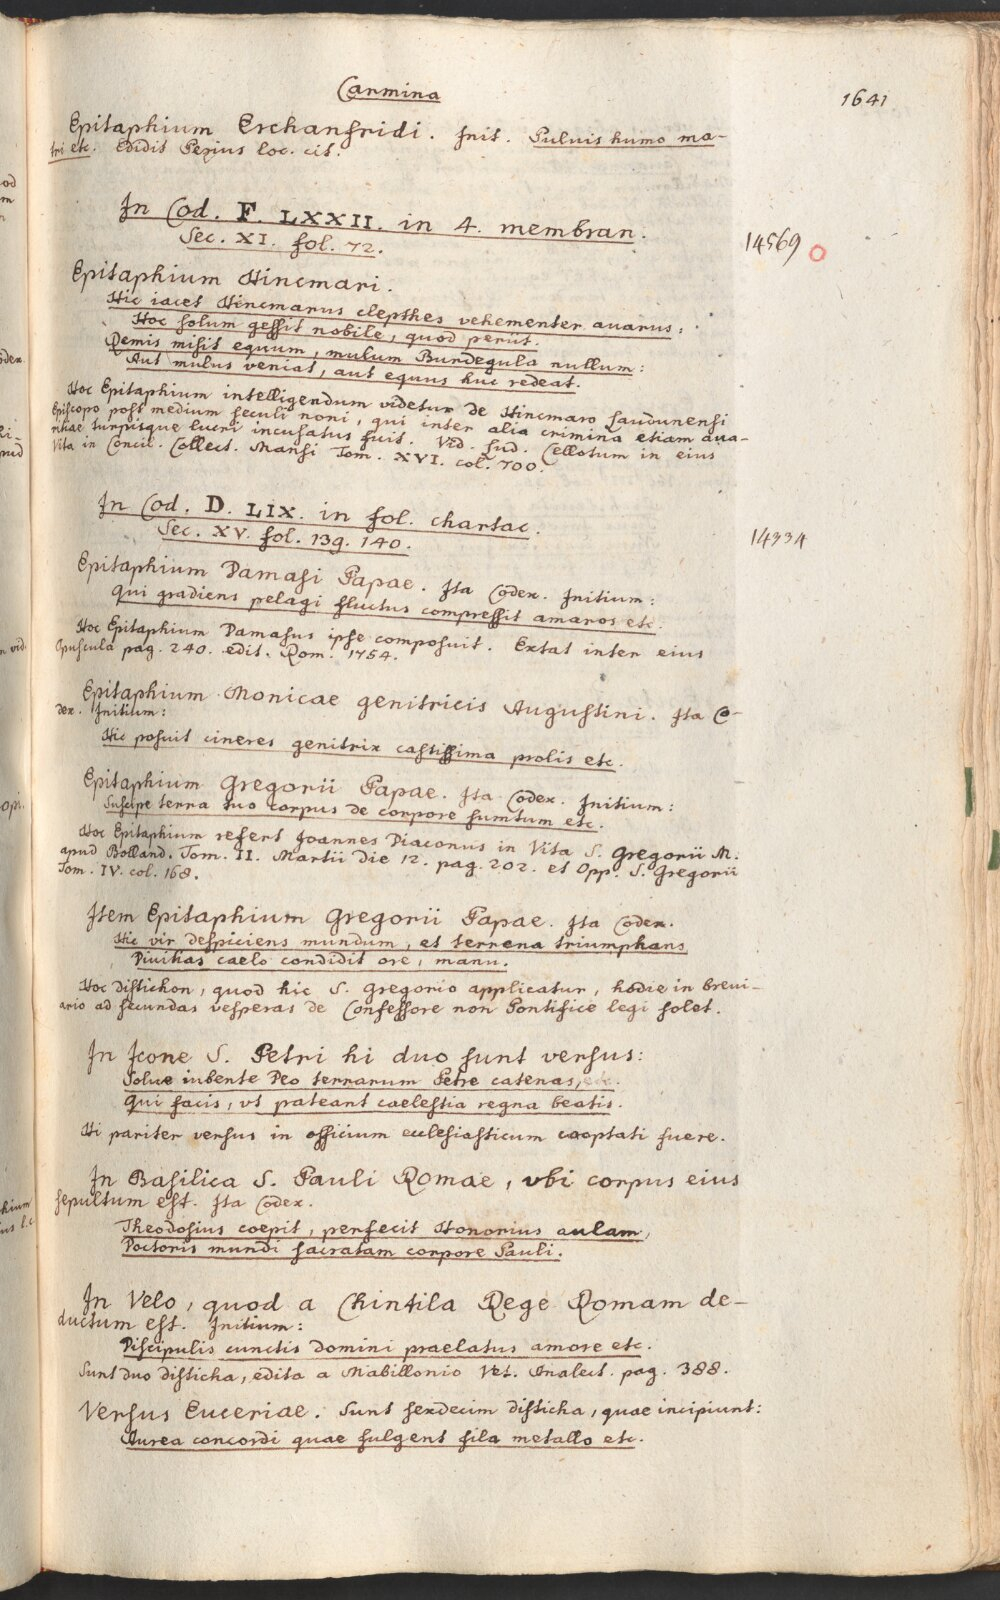 Carmina
1641
Epitaphium Erchanfridi. Init. Puluis humo ma-
tri etc. Edidit Pezius loc. cit.
In Cod. F. LXXII. in 4. membran.
Sec. XI. fol. 72.
14569
Epitaphium Hincmari.
Hic iacet Hincmarus clepthes vehementer auarus:
Hoc solum gessit nobile, quod periit.
Remis misit equum, mulum Burdegula nullum:
Aut mulus veniat, aut equus huc redeat.
Hoc Epitaphium intelligendum videtur de Hincmaro Laudunensi
Episcopo post medium seculi noni, qui inter alia crimina etiam aua-
ritiae turpisque lucri incusatus fuit. Vid. Lud. Cellotum in eius
Vita in Concil. Collect. Mansi Tom. XVI. col. 700.
In Cod. D. LIX. in fol. chartac.
Sec. XV. fol. 139. 140.
14334
Epitaphium Damasi Papae. Ita Codex. Initium:
Qui gradiens pelagi fluctus compressit amaros etc.
Hoc Epitaphium Damasus ipse composuit. Extat inter eius
Opuscula pag. 240. edit. Rom. 1754.
Epitaphium Monicae genitricis Augustini. Ita Co-
dex. Initium:
Hic posuit cineres genitrix castissima prolis etc.
Epitaphium Gregorii Papae. Ita Codex. Initium:
Suscipe terra tuo corpus de corpore sumtum etc.
Hoc Epitaphium refert Joannes Diaconus in Vita S. Gregorii M.
apud Bolland. Tom. II. Martii die 12. pag. 202. et Opp. S. Gregorii
Tom. IV. col. 168.
Item Epitaphium Gregorii Papae. Ita Codex.
Hic vir despiciens mundum, et terrena triumphans
Diuitias caelo condidit ore, manu.
Hoc distichon, quod hic S. Gregorio applicatur, hodie in breui-
ario ad secundas vesperas de Confessore non Pontifice legi solet.
In Icone S. Petri hi duo sunt versus:
Solue iubente Deo terrarum Petre catenas, etc.
Qui facis, vt pateant caelestia regna beatis.
Hi pariter versus in officium ecclesiasticum cooptati fuere.
In Basilica S. Pauli Romae, vbi corpus eius
sepultum est. Ita Codex.
Theodosius coepit, perfecit Honorius aulam,
Doctoris mundi sacratam corpore Pauli.
In Velo, quod a Chintila Rege Romam de-
ductum est. Initium:
Discipulis cunctis domini praelatus amore etc.
Sunt duo disticha, edita a Mabillonio Vet. Analect. pag. 388.
Versus Euceriae. Sunt sexdecim disticha, quae incipiunt:
Aurea concordi quae fulgent fila metallo etc.